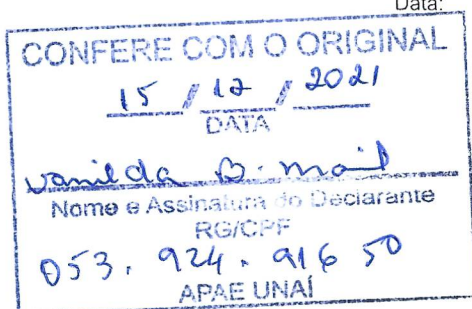 Data:
CONFERE COM O ORIGINAL
15 / 12 / 2021
DATA
Vanilda
Nome e Assinatura do Declarante
RG/CPF
053. 924. 916 50
APAE UNAÍ